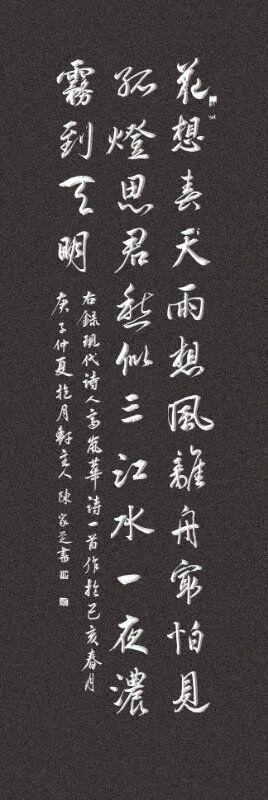 花想春天雨想風離舟窗怕見
孤燈思君愁似三江水一夜濃
霧到天明
右錄現代詩人高嵐華詩一首作於己亥春月
庚子仲夏抱月軒主人陳家芝書